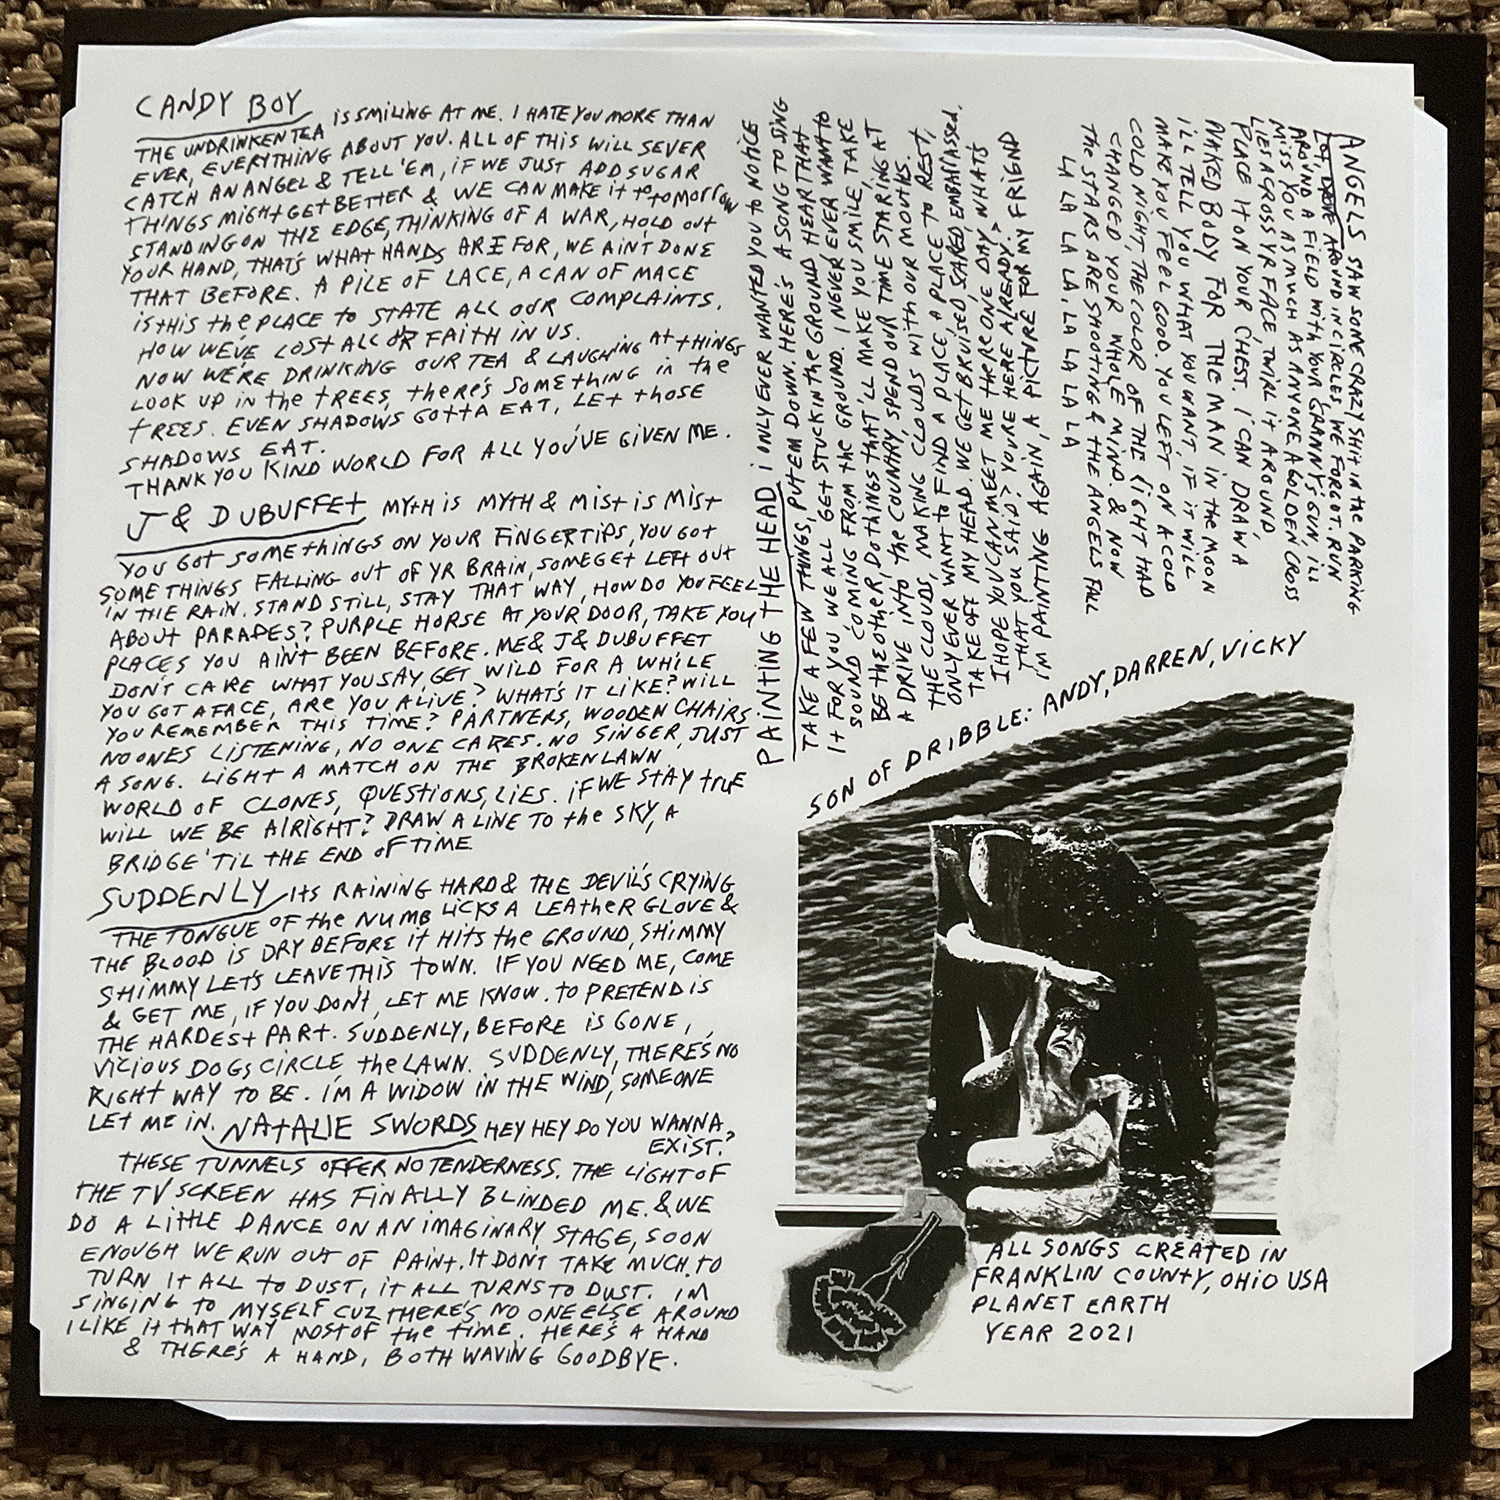 CANDY BOY IS SMILING AT ME. I HATE YOU MORE THAN
THE UNDRINKEN TEA
EVER, EVERYTHING ABOUT YOU. ALL OF THIS WILL SEVER
CATCH AN ANGEL & TELL 'EM, IF WE JUST ADD SUGAR
THINGS MIGHT GET BETTER & WE CAN MAKE IT TO TOMORROW
STANDING ON THE EDGE, THINKING OF A WAR, HOLD OUT
YOUR HAND, THAT'S WHAT HANDS ARE FOR, WE AINT DONE
THAT BEFORE. A PILE OF LACE, A CAN OF MACE
IS THIS THE PLACE TO STATE ALL OUR COMPLAINTS.
HOW WE'VE LOST ALL OR FAITH IN US.
NOW WE'RE DRINKING OUR TEA & LAUGHING AT THINGS
LOOK UP IN THE TREES, THERE'S SOMETHING IN THE
TREES. EVEN SHADOWS GOTTA EAT, LET THOSE
SHADOWS EAT.
THANK YOU KIND WORLD FOR ALL YOU'VE GIVEN ME.
J & DUBUFFET MYTH IS MYTH & MIST IS MIST
YOU GOT SOMETHINGS ON YOUR FINGERTIPS, YOU GOT
SOME THINGS FALLING OUT OF YR BRAIN, SOME GET LEFT OUT
IN THE RAIN. STAND STILL, STAY THAT WAY, HOW DO YOU FEEL
ABOUT PARADES? PURPLE HORSE AT YOUR DOOR, TAKE YOU
PLACES YOU AIN'T BEEN BEFORE. ME & J & DUBUFFET
DON'T CARE WHAT YOU SAY, GET WILD FOR A WHILE
YOU GOT A FACE, ARE YOU ALIVE? WHAT'S IT LIKE? WILL
YOU REMEMBER THIS TIME? PARTNERS, WOODEN CHAIRS
NO ONES LISTENING, NO ONE CARES. NO SINGER, JUST
A SONG. LIGHT A MATCH ON THE BROKEN LAWN
WORLD OF CLONES, QUESTIONS, LIES. IF WE STAY TRUE
WILL WE BE ALRIGHT? DRAW A LINE TO THE SKY, A
BRIDGE 'TIL THE END OF TIME
SUDDENLY ITS RAINING HARD & THE DEVIL'S CRYING
THE TONGUE OF THE NUMB LICKS A LEATHER GLOVE &
THE BLOOD IS DRY BEFORE IT HITS THE GROUND, SHIMMY
SHIMMY LET'S LEAVE THIS TOWN. IF YOU NEED ME, COME
& GET ME, IF YOU DON'T, LET ME KNOW. TO PRETEND IS
THE HARDEST PART. SUDDENLY, BEFORE IS GONE,
VICIOUS DOGS CIRCLE THE LAWN. SUDDENLY, THERE'S NO
RIGHT WAY TO BE. I'M A WIDOW IN THE WIND, SOMEONE
LET ME IN. NATALIE SWORDS HEY HEY DO YOU WANNA
EXIST?
THESE TUNNELS OFFER NO TENDERNESS. THE LIGHT OF
THE TV SCREEN HAS FINALLY BLINDED ME. & WE
DO A LITTLE DANCE ON AN IMAGINARY STAGE, SOON
ENOUGH WE RUN OUT OF PAINT. IT DON'T TAKE MUCH TO
TURN IT ALL TO DUST, IT ALL TURNS TO DUST. I'M
SINGING TO MYSELF CUZ THERE'S NO ONE ELSE AROUND
I LIKE IT THAT WAY MOST OF THE TIME. HERE'S A HAND
& THERE'S A HAND, BOTH WAVING GOODBYE.
PAINTING THE HEAD I ONLY EVER WANTED YOU TO NOTICE
TAKE A FEW THINGS, PUT EM DOWN. HERE'S A SONG TO SING
IT FOR YOU WE ALL GET STUCK IN THE GROUND HEAR THAT
SOUND COMING FROM THE GROUND. I NEVER EVER WANT TO
BE THE OTHER, DO THINGS THAT'LL MAKE YOU SMILE, TAKE
A DRIVE INTO THE COUNTRY, SPEND OUR TIME STARING AT
THE CLOUDS, MAKING CLOUDS WITH OUR MOUTHS.
ONLY EVER WANT TO FIND A PLACE, A PLACE TO REST,
TAKE OFF MY HEAD. WE GET BRUISED, SCARED, EMBARASSED.
I HOPE YOU CAN MEET ME THERE ONE DAY, WHAT'S
THAT YOU SAID? YOU'RE HERE ALREADY?
I'M PAINTING AGAIN, A PICTURE FOR MY FRIEND
ANGELS SAW SOME CRAZY SHIT IN THE PARKING
LOT, DROVE AROUND IN CIRCLES, WE FORGOT. RUN
AROUND A FIELD WITH YOUR GRANNY'S GUN. I'LL
MISS YOU AS MUCH AS ANYONE. A GOLDEN CROSS
LIES ACROSS YR FACE, TWIRL IT AROUND,
PLACE IT ON YOUR CHEST. I CAN DRAW A
NAKED BODY FOR THE MAN IN THE MOON
I'LL TELL YOU WHAT YOU WANT, IF IT WILL
MAKE YOU FEEL GOOD. YOU LEFT ON A COLD
COLD NIGHT, THE COLOR OF THE LIGHT HAD
CHANGED YOUR WHOLE MIND, & NOW
THE STARS ARE SHOOTING & THE ANGELS FALL
LA LA LA LA, LA LA LA LA
SON OF DRIBBLE: ANDY, DARREN, VICKY
ALL SONGS CREATED IN
FRANKLIN COUNTY, OHIO USA
PLANET EARTH
YEAR 2021